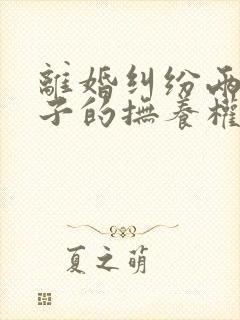 離婚糾紛兩
子的撫養權
夏之萌